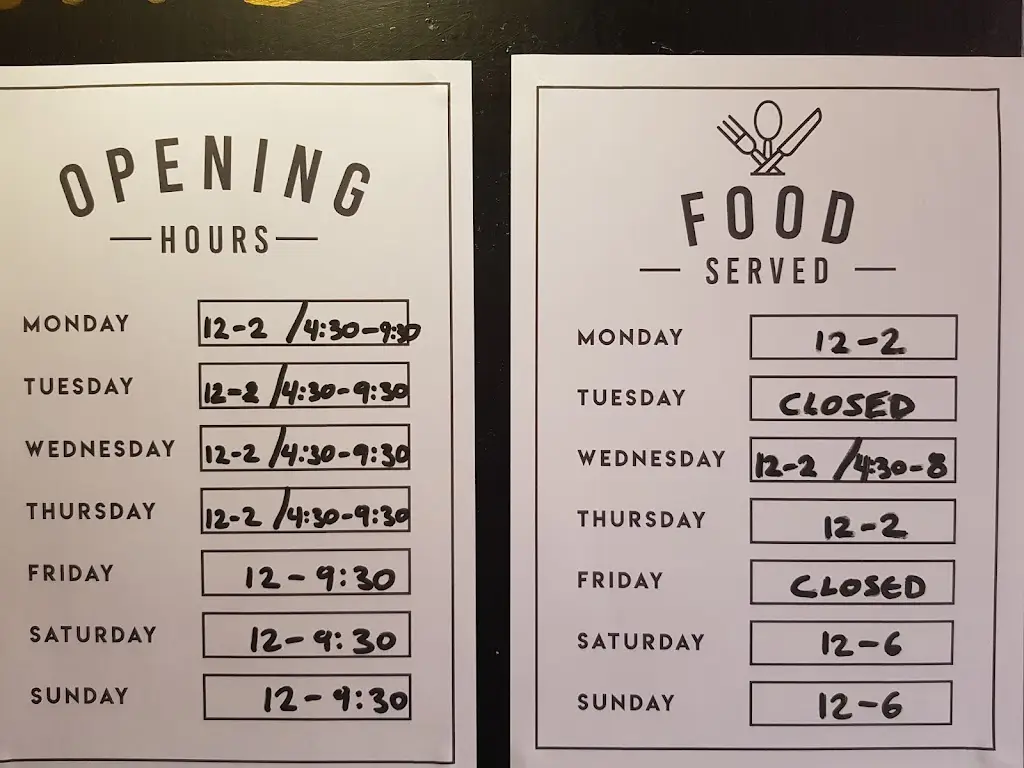 OPENING
HOURS
MONDAY 12-2 /4:30-9:30
TUESDAY 12-2 /4:30-9:30
WEDNESDAY 12-2 /4:30-9:30
THURSDAY 12-2 /4:30-9:30
FRIDAY 12-9:30
SATURDAY 12-9:30
SUNDAY 12-9:30
FOOD
SERVED
MONDAY 12-2
TUESDAY CLOSED
WEDNESDAY 12-2 /4:30-8
THURSDAY 12-2
FRIDAY CLOSED
SATURDAY 12-6
SUNDAY 12-6